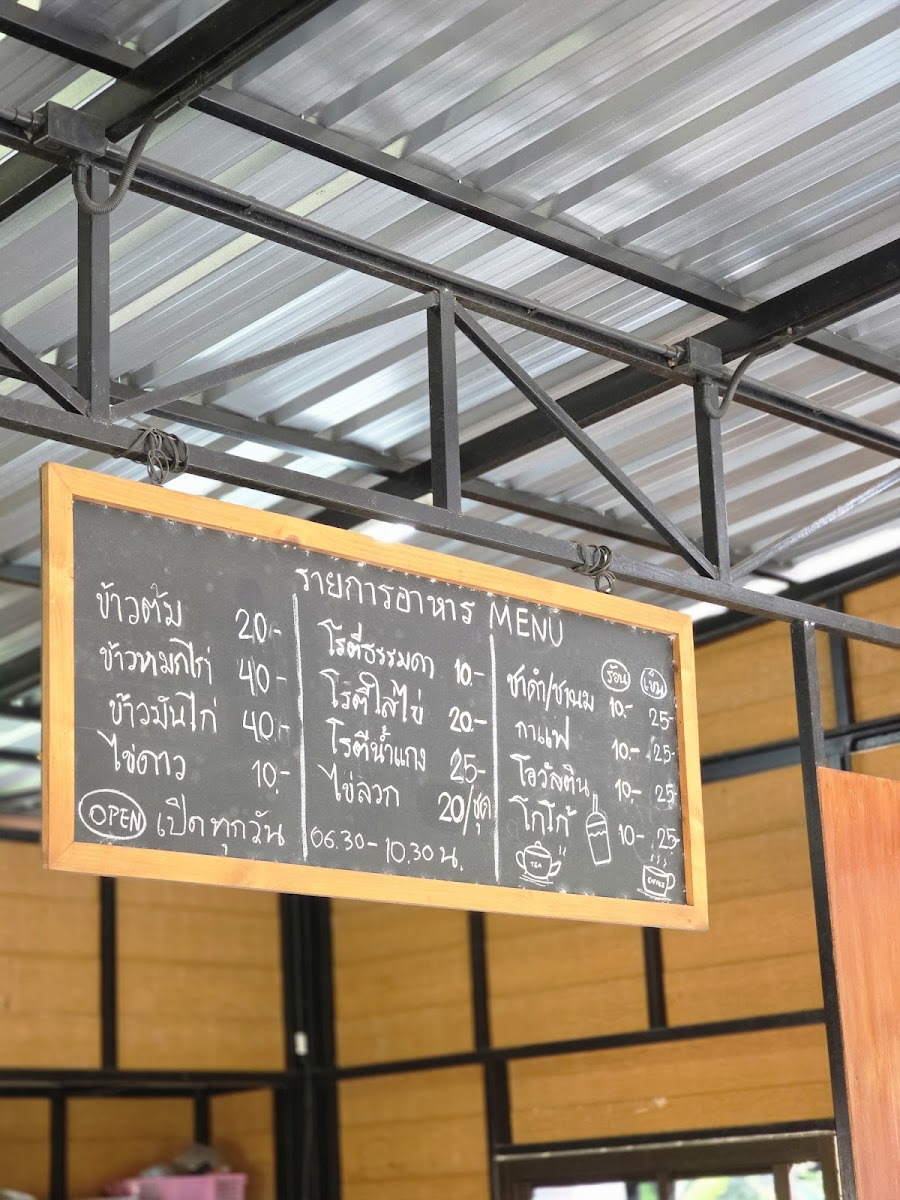 รายการอาหาร MENU
ข้าวต้ม 20.-
ข้าวหมกไก่ 40.-
ข้าวมันไก่ 40.-
ไข่ดาว 10.-
OPEN เปิดทุกวัน 06.30 - 10.30 น.
โรตีธรรมดา 10.-
โรตีใส่ไข่ 20.-
โรตีน้ำแกง 25-
ไข่ลวก 20/ชุด
ร้อน เย็น
ชาดำ/ชานม 10.- 25-
กาแฟ 10.- 25-
โอวัลติน 10.- 25-
โกโก้ 10- 25-
TEA
COFFEE